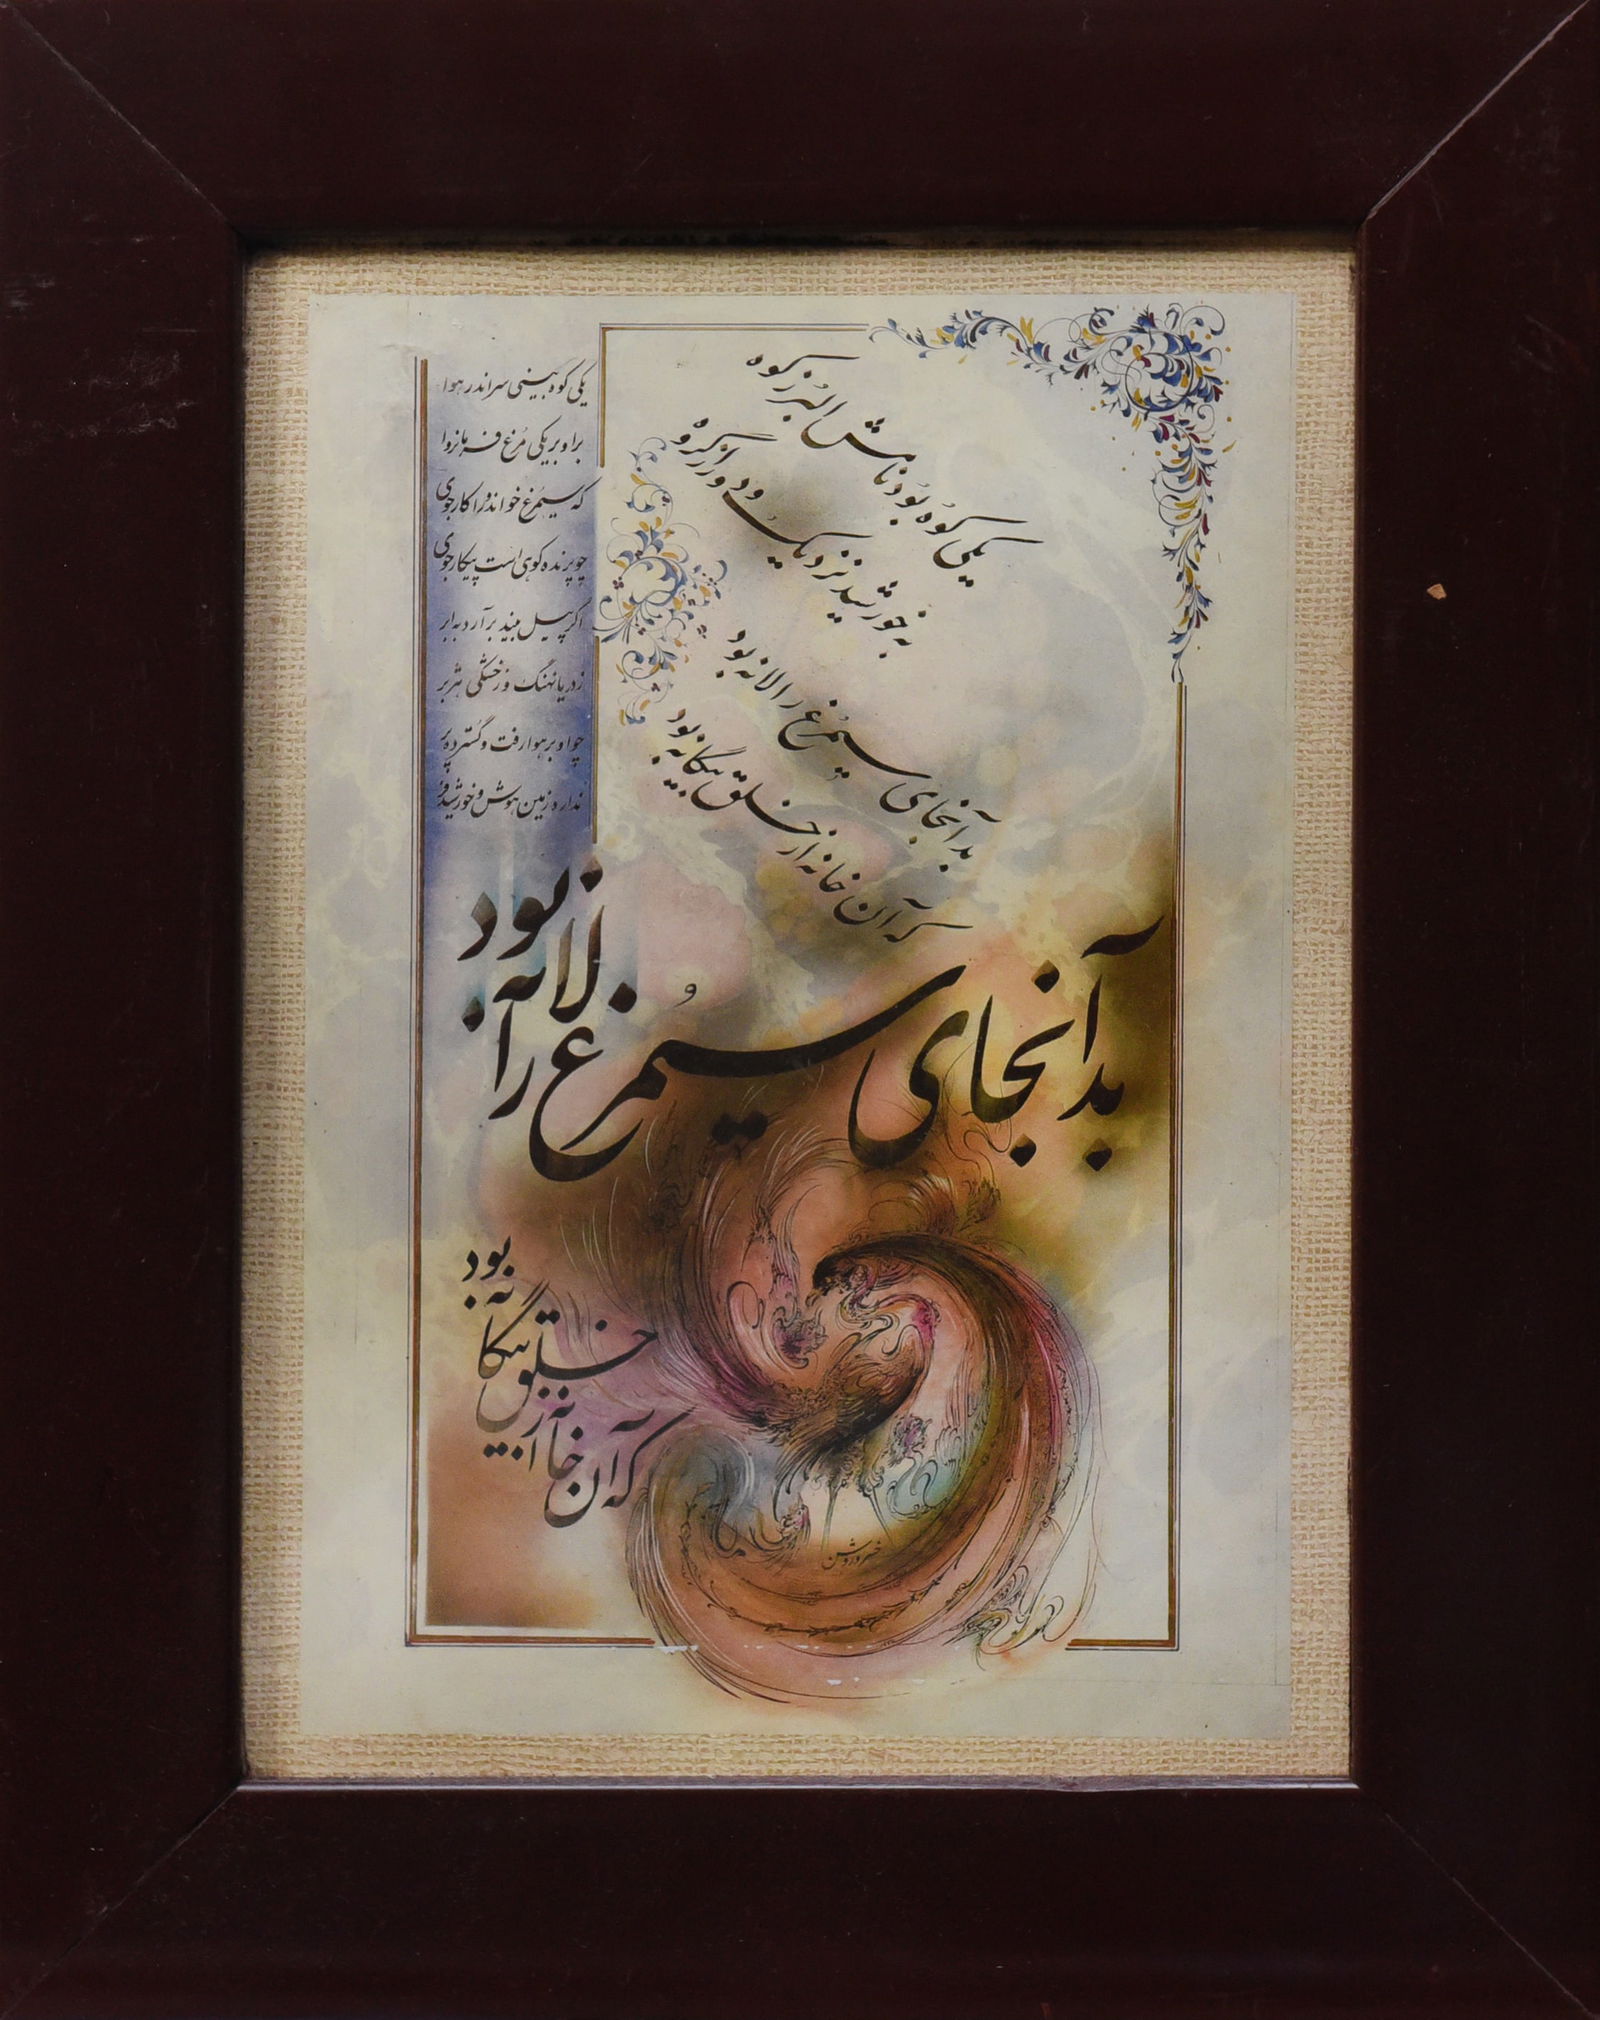 یکی کوه بُد نامش البُرز کوه
به خورشید نزدیک و دور از گروه
بدآنجای سیمُرغ را لانه بود
که آن خانه از خلق بیگانه بود
یکی کوه بینی سر اندر هوا
بر او بر یکی مُرغ فرمانروا
که سیمُرغ خواند ورا کارجوی
چو پرنده کوهی است پیکارجوی
اگر پیل بیند برآرد به ابر
ز دریا نهنگ و ز خشکی هژبر
چو او بر هوا رفت و گسترد پر
ندارد زمین هوش و خورشید فر
بدآنجای سیمُرغ را لانه بود
که آن خانه از خلق بیگانه بود
خسرو روشن